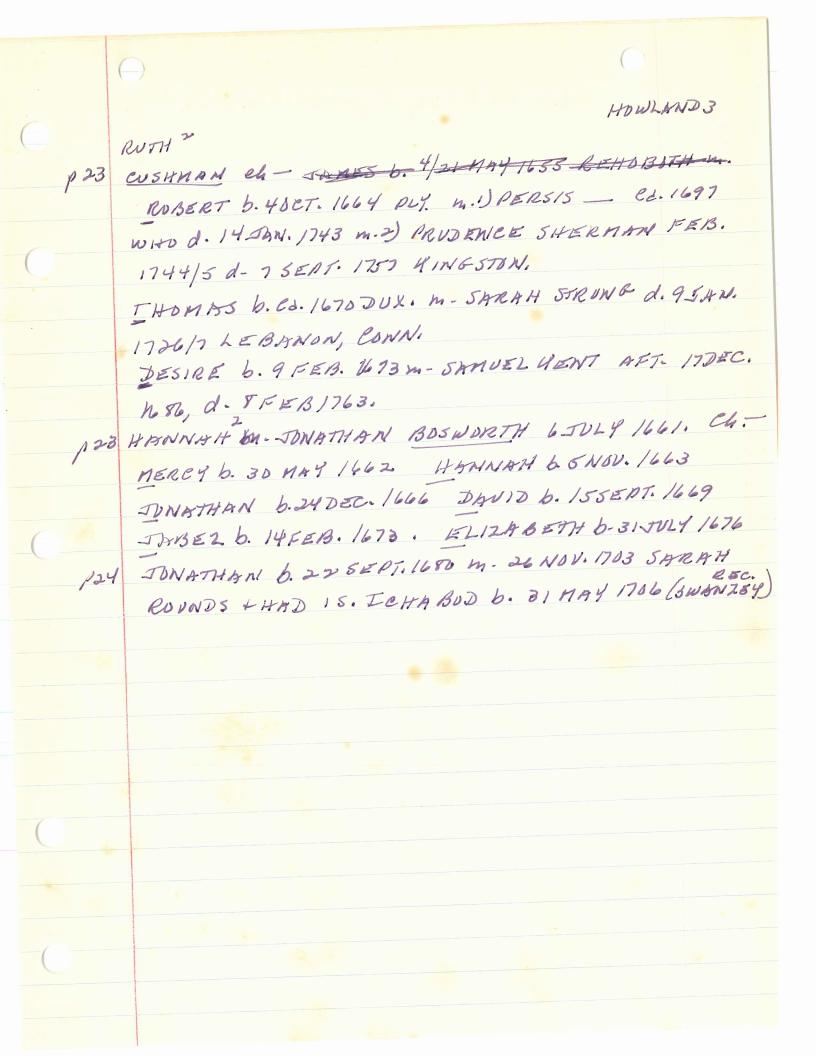 HOWLAND 3
RUTH 2
p 23 CUSHMAN ch - JAMES b. 4/21 MAY 1655 REHOBOTH m.
ROBERT b. 4 OCT. 1664 PLY. m. 1) PERSIS — Cd. 1697
WHO d. 14 JAN. 1743 m. 2) PRUDENCE SHERMAN FEB.
1744/5 d- 7 SEPT. 1757 KINGSTON.
THOMAS b. Cd. 1670 DUX. m- SARAH STRONG d. 9 JAN.
1726/7 LEBANON, CONN.
DESIRE b. 9 FEB. 1673 m- SAMUEL KENT AFT. 17 DEC.
1686, d- 8 FEB 1763.
p 23 HANNAH 2 m- JONATHAN BOSWORTH 6 JULY 1661. Ch:-
MERCY b. 30 MAY 1662 HANNAH b. 5 NOV. 1663
JONATHAN b. 24 DEC. 1666 DAVID b. 15 SEPT. 1669
JABEZ b. 14 FEB. 1673. ELIZABETH b- 31 JULY 1676
p24 JONATHAN b. 22 SEPT. 1680 m- 26 NOV. 1703 SARAH
ROUNDS + HAD 1 S. ICHABOD b. 31 MAY 1706 (SWANZEY REC.)